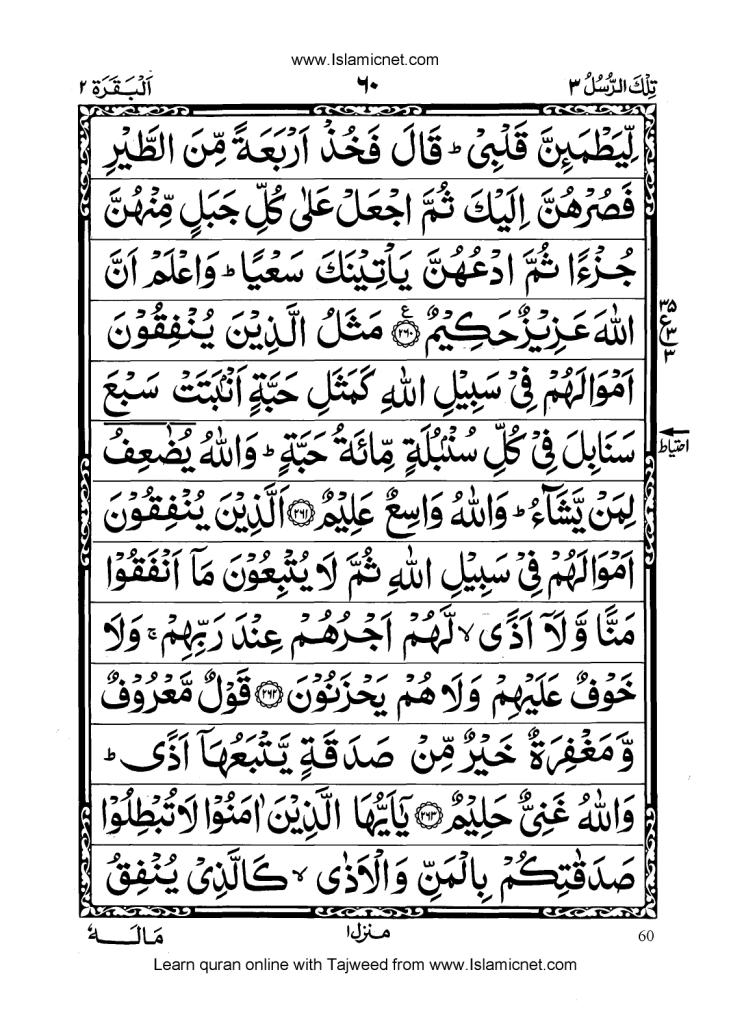 www.Islamicnet.com
تِلْكَ الرُّسُلُ ٣ ٦٠ اَلْبَقَرَة ٢
لِّيَطْمَئِنَّ قَلْبِىْ ؕ قَالَ فَخُذْ اَرْبَعَةً مِّنَ الطَّيْرِ
فَصُرْهُنَّ اِلَيْكَ ثُمَّ اجْعَلْ عَلٰى كُلِّ جَبَلٍ مِّنْهُنَّ
جُزْءًا ثُمَّ ادْعُهُنَّ يَاْتِيْنَكَ سَعْيًا ؕ وَاعْلَمْ اَنَّ
اللّٰهَ عَزِيْزٌ حَكِيْمٌ ﴿٢٦٠﴾ ع مَثَلُ الَّذِيْنَ يُنْفِقُوْنَ
٣٥
ع
٣
٣
اَمْوَالَهُمْ فِىْ سَبِيْلِ اللّٰهِ كَمَثَلِ حَبَّةٍ اَنْۢبَتَتْ سَبْعَ
سَنَابِلَ فِىْ كُلِّ سُنْۢبُلَةٍ مِّائَةُ حَبَّةٍ ؕ وَاللّٰهُ يُضٰعِفُ
احتياط
لِمَنْ يَّشَآءُ ؕ وَاللّٰهُ وَاسِعٌ عَلِيْمٌ ﴿٢٦١﴾ اَلَّذِيْنَ يُنْفِقُوْنَ
اَمْوَالَهُمْ فِىْ سَبِيْلِ اللّٰهِ ثُمَّ لَا يُتْبِعُوْنَ مَآ اَنْفَقُوْا
مَنًّا وَّلَآ اَذًى ۙ لَّهُمْ اَجْرُهُمْ عِنْدَ رَبِّهِمْ ۚ وَلَا
خَوْفٌ عَلَيْهِمْ وَلَا هُمْ يَحْزَنُوْنَ ﴿٢٦٢﴾ قَوْلٌ مَّعْرُوْفٌ
وَّمَغْفِرَةٌ خَيْرٌ مِّنْ صَدَقَةٍ يَّتْبَعُهَآ اَذًى ؕ
وَاللّٰهُ غَنِىٌّ حَلِيْمٌ ﴿٢٦٣﴾ يٰٓاَيُّهَا الَّذِيْنَ اٰمَنُوْا لَا تُبْطِلُوْا
صَدَقٰتِكُمْ بِالْمَنِّ وَالْاَذٰى ۙ كَالَّذِىْ يُنْفِقُ
60 منزل ١ مَالَهٗ
Learn quran online with Tajweed from www.Islamicnet.com